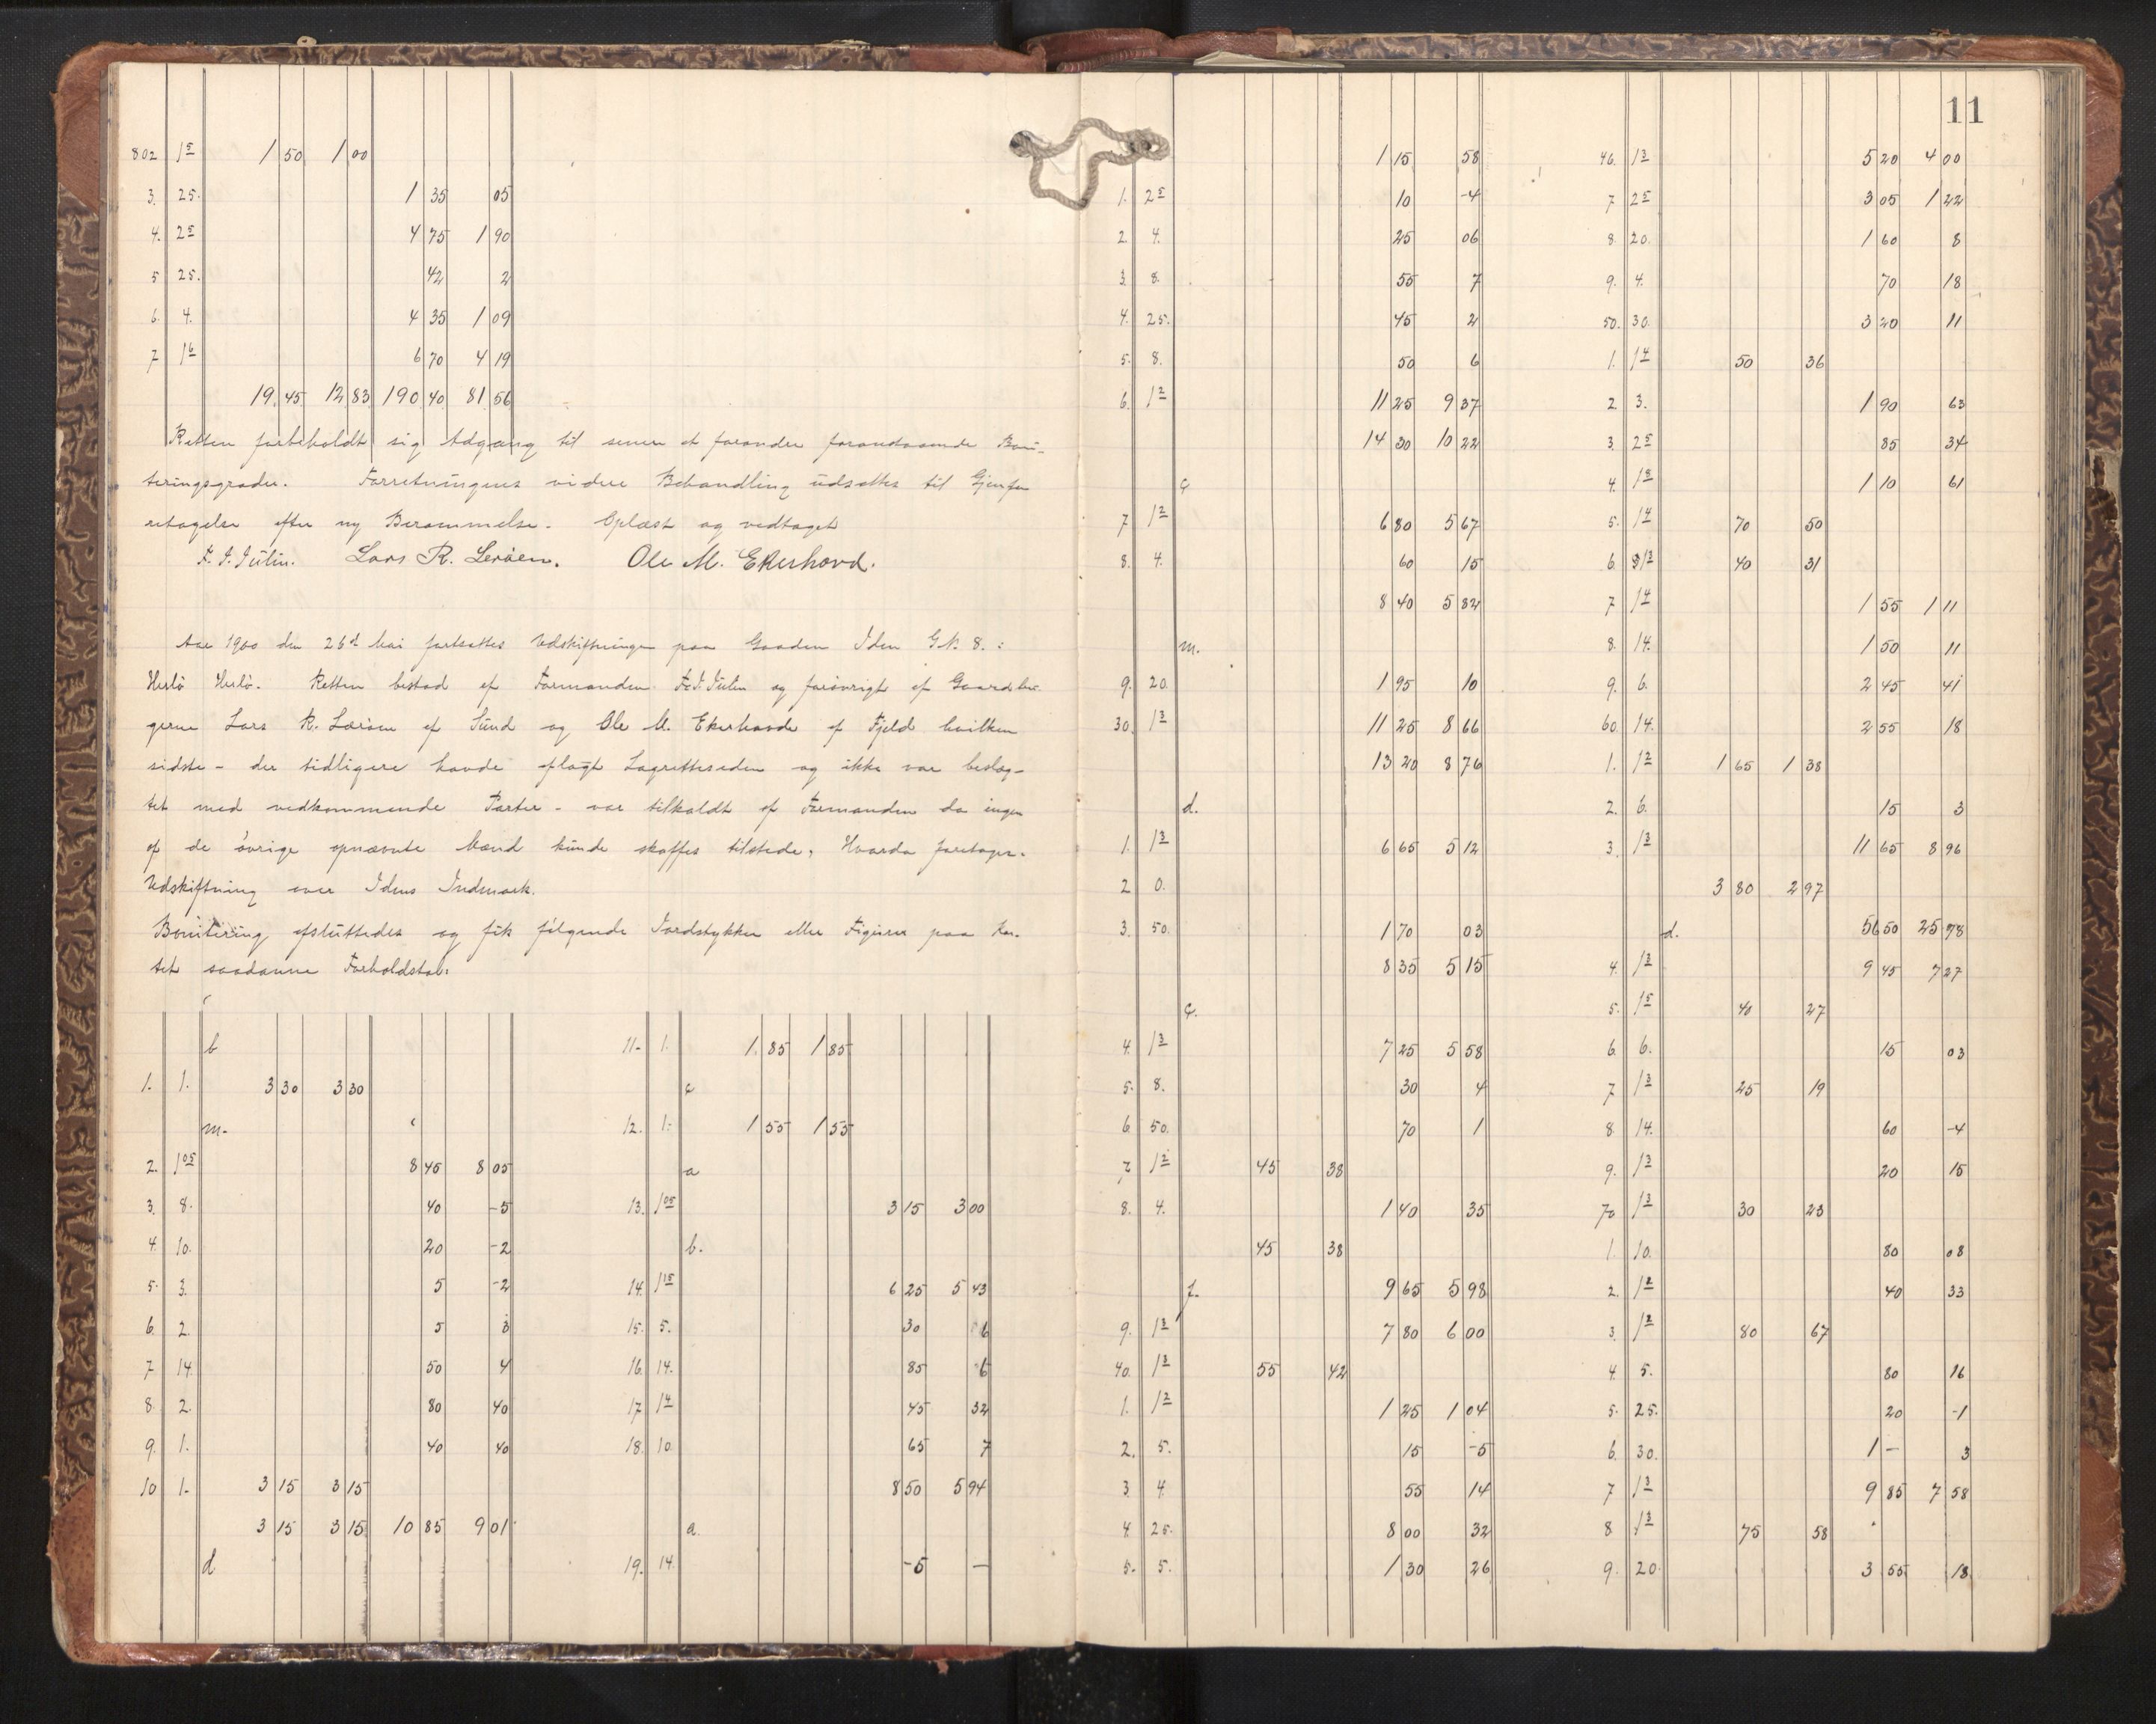 802 1⁵ 1 50 1 00
3. 25. 1 35 05
4. 2⁵ 4 75 1 90
5 25. 42 2
6. 4. 4 35 1 09
7 1⁶ 6 70 4 19
19 45 12 83 190 40 81 56
Retten forbeholdt sig Adgang til senere at forandre foranstaaende Boni-
teringsgrader. Forretningens videre Behandling udsattes til Gjenfo-
retagelse efter ny Berammelse. Oplæst og vedtaget
F. J. Julin. Lars R. Leröen. Ole M. Ekerhovd.
Aar 1900 den 26d Mai fortsattes Udskiftningen paa Gaarden Iden G.N. 8. :
Herlö Herlö. Retten bestod af Formanden F. J. Julin og forövrigt af Gaardbru-
gerne Lars R. Leröen af Sund og Ole M. Ekerhovde af Fjeld hvilken
sidste - der tidligere havde aflagt Lagretteseden og ikke var beslæg-
tet med vedkommende Parter - var tilkaldt af Formanden da ingen
af de övrige opnævnte Mænd kunde skaffes tilstede. Hvorda foretoges.
Udskiftning over Idens Indmark.
Bonitering afsluttedes og fik fölgende Jordstykker eller Figurer paa Kar-
tet saadanne Forholdstal:
b
1. 1. 3 30 3 30
m.
2. 1⁰⁵ 8 45 8 05
3. 8. 40 -5
4. 10. 20 -2
5. 3. 5 -2
6. 2. 5 3
7 14. 50 4
8. 2. 80 40
9. 1. 40 40
10 1. 3 15 3 15
3 15 3 15 10 85 9 01
d
11. 1. 1 85 1 85
c
12. 1. 1 55 1 55
a
13. 1⁰⁵ 3 15 3 00
b.
14. 1¹⁵ 6 25 5 43
15. 5. 30 6
16. 14. 85 6
17 1⁴ 45 32
18. 10. 65 7
8 50 5 94
a
19. 14. -5 —
11
1 15 58
1. 2⁵ 10 -4
2 4. 25 06
3. 8. 55 7
4. 25. 45 2
5. 8. 50 6
6. 1² 11 25 9 37
14 30 10 22
c
7 1² 6 80 5 67
8. 4. 60 15
8 40 5 82
m.
9. 20. 1 95 10
30. 1³ 11 25 8 66
13 20 8 76
d.
1. 1³ 6 65 5 12
2 0.
3. 50. 1 70 03
8 35 5 15
c.
4. 1³ 7 25 5 58
5. 8. 30 4
6. 50. 70 1
7. 1² 45 38
8. 4. 1 40 35
45 38
f. 9 65 5 98
9. 1³ 7 80 6 00
40. 1³ 55 42
1. 1² 1 25 1 04
2. 5. 15 -5
3. 4 55 14
4. 25. 8 00 32
5. 5. 1 30 26
46. 1³ 5 20 4 00
7 2⁵ 3 05 1 22
8. 20. 1 60 8
9. 4. 70 18
50. 30. 3 20 11
1. 1⁴ 50 36
2 3. 1 90 63
3. 2⁵ 85 34
4. 1⁸ 1 10 61
5. 1⁴ 70 50
6. 1³ 40 31
7 1⁴ 1 55 1 11
8. 14. 1 50 11
9. 6. 2 45 41
60. 14. 2 55 18
1. 1² 1 65 1 38
2. 6. 15 3
3. 1³ 11 65 8 96
3 80 2 97
d. 56 50 25 78
4. 1³ 9 45 7 27
5. 1⁵ 40 27
6. 6. 15 03
7 1³ 25 19
8. 14. 60 -4
9. 1³ 20 15
70 1³ 30 23
1. 10. 80 08
2. 1² 40 33
3. 1² 80 67
4. 5. 80 16
5. 25. 20 -1
6. 30. 1 — 3
7 1³ 9 85 7 58
8 1³ 75 58
9. 20. 3 55 18